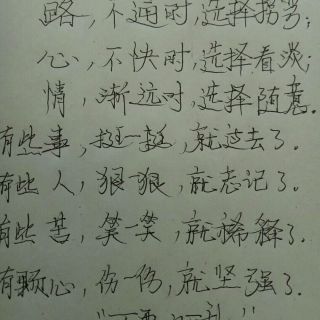 路，不通时，选择拐弯；
心，不快时，选择看淡；
情，渐远时，选择随意。
有些事，挺一挺，就过去了.
有些人，狠一狠，就忘记了.
有些苦，笑一笑，就稀释了.
有颗心，伤一伤，就坚强了.